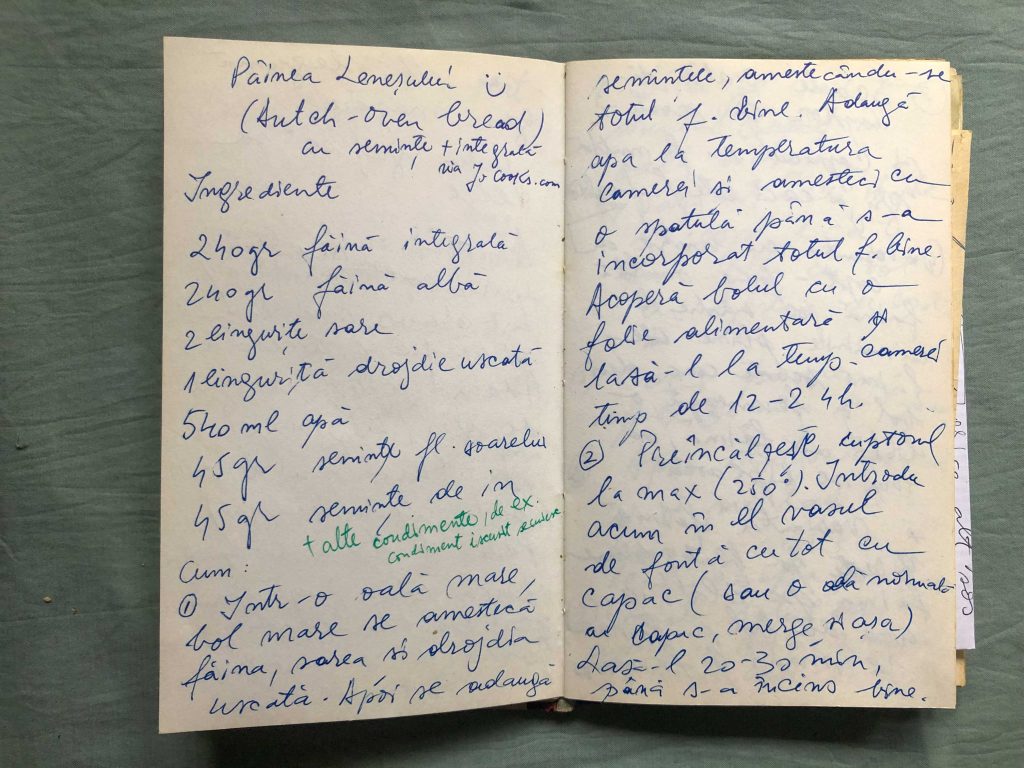 Pâinea Leneșului
(Dutch-oven bread)
cu semințe + integrală
via Jo Cooks.com
Ingrediente
240gr făină integrală
240gr făină albă
2 lingurițe sare
1 linguriță drojdie uscată
540 ml apă
45gr semințe fl. soarelui
45gr semințe de in
+ alte condimente, de ex.
condiment
Cum:
① Într-o oală mare,
bol mare se amestecă
făina, sarea și drojdia
uscată. Apoi se adaugă
semințele, amestecându-se
totul f. bine. Adaugă
apa la temperatura
camerei si amesteci cu
o spatulă până s-a
incorporat totul f. bine.
Acoperă bolul cu o
folie alimentară și
lasă-l la temp. camerei
timp de 12-24h.
② Preîncălzește cuptorul
la max (250°). Introdu
acum în el vasul
de fontă cu tot cu
capac (sau o oală normală
cu capac, merge și așa)
Lasă-l 20-30 min,
până s-a încins bine.